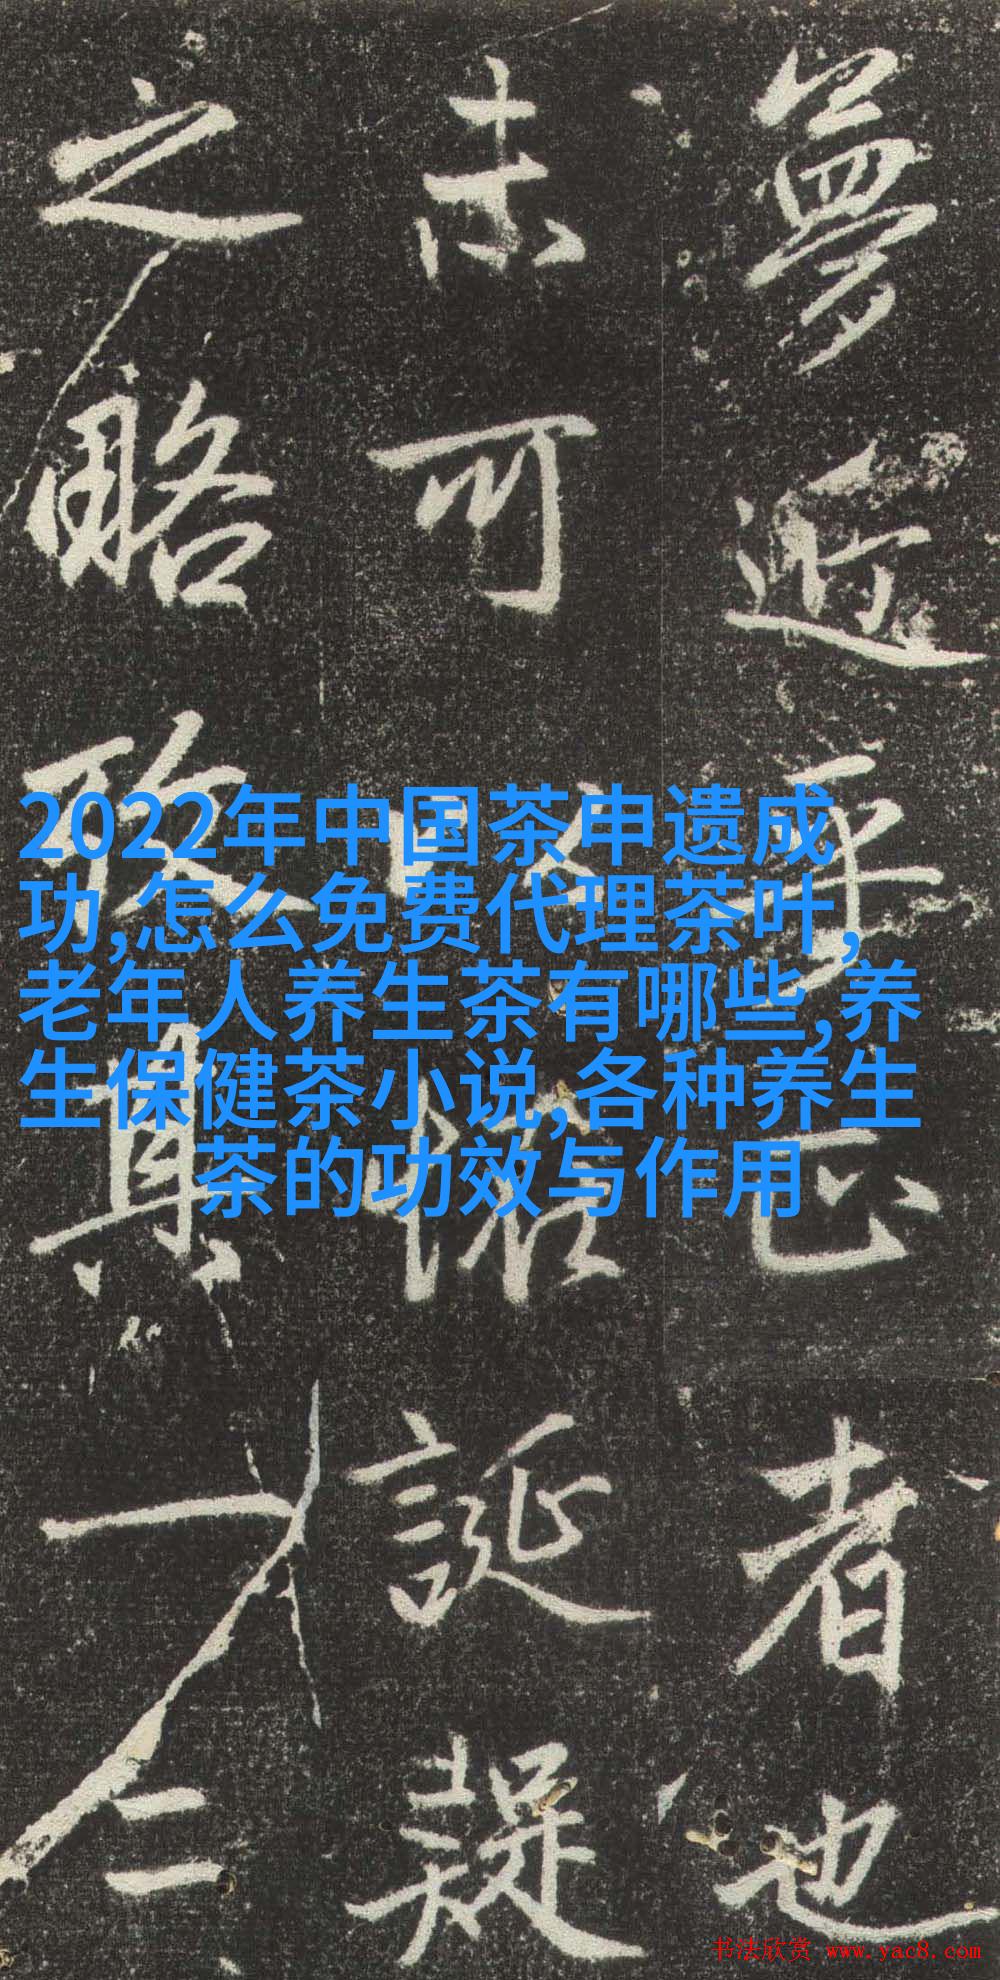 夢近乎正者也
未可以誕疑
之略具一
2022年中国茶申遗成
功,怎么免费代理茶叶,
老年人养生茶有哪些,养
生保健茶小说,各种养生
茶的功效与作用
书法欣赏 www.yac8.com